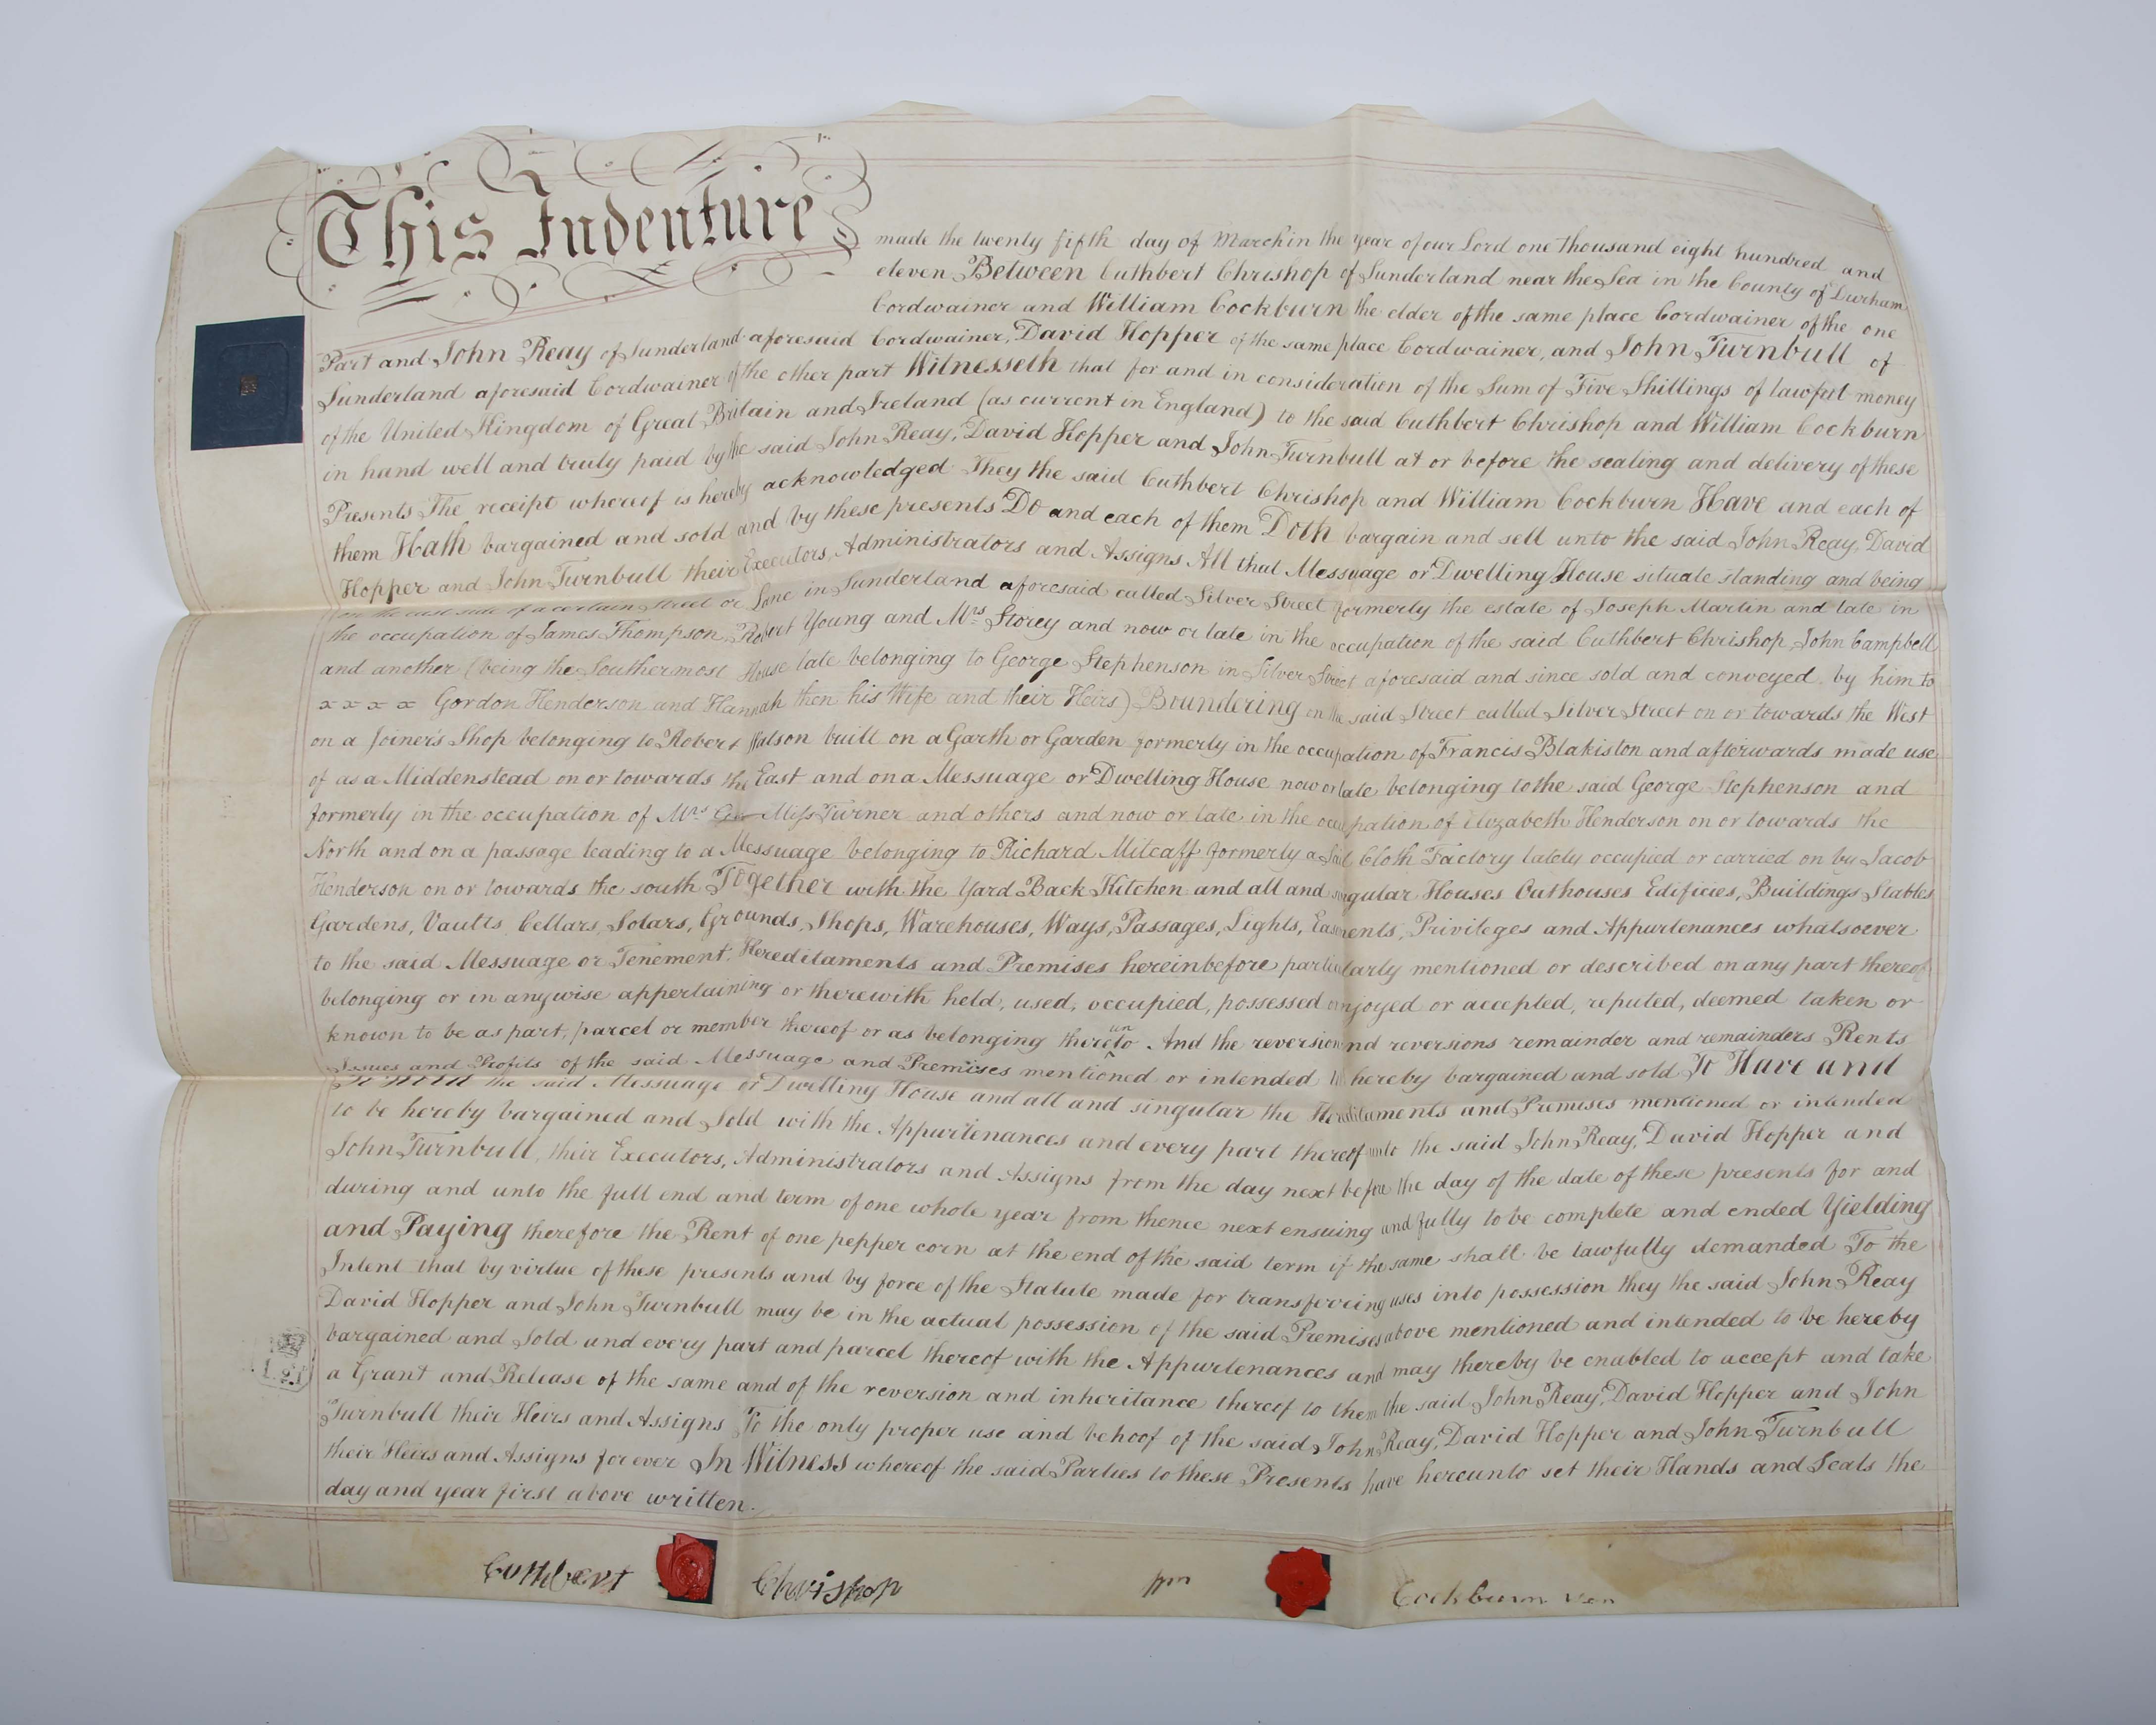 This Indenture made the twenty fifth day of March in the year of our Lord one thousand eight hundred and
eleven Between Cuthbert Chrishop of Sunderland near the Sea in the County of Durham
Cordwainer and William Cockburn the elder of the same place Cordwainer of the one
Part and John Reay of Sunderland aforesaid Cordwainer, David Hopper of the same place Cordwainer, and John Turnbull of
Sunderland aforesaid Cordwainer of the other part Witnesseth that for and in consideration of the Sum of Five Shillings of lawful money
of the United Kingdom of Great Britain and Ireland (as current in England) to the said Cuthbert Chrishop and William Cockburn
in hand well and truly paid by the said John Reay, David Hopper and John Turnbull at or before the sealing and delivery of these
Presents The receipt whereof is hereby acknowledged They the said Cuthbert Chrishop and William Cockburn Have and each of
them Hath bargained and sold and by these presents Do and each of them Doth bargain and sell unto the said John Reay, David
Hopper and John Turnbull their Executors, Administrators and Assigns All that Messuage or Dwelling House situate standing and being
on the east side of a certain Street or Lane in Sunderland aforesaid called Silver Street formerly the estate of Joseph Martin and late in
the occupation of James Thompson, Robert Young and Mrs Storey and now or late in the occupation of the said Cuthbert Chrishop, John Campbell
and another (being the Southermost House late belonging to George Stephenson in Silver Street aforesaid and since sold and conveyed by him to
x x x x Gordon Henderson and Hannah then his Wife and their Heirs) Boundering on the said Street called Silver Street on or towards the West
on a Joiner's Shop belonging to Robert Watson built on a Garth or Garden formerly in the occupation of Francis Blakiston and afterwards made use
of as a Middenstead on or towards the East and on a Messuage or Dwelling House now or late belonging to the said George Stephenson and
formerly in the occupation of Mrs Miss Turner and others and now or late in the occupation of Elizabeth Henderson on or towards the
North and on a passage leading to a Messuage belonging to Richard Milcaff formerly a Sail Cloth Factory lately occupied or carried on by Jacob
Henderson on or towards the south Together with the Yard Back Kitchen and all and singular Houses Outhouses Edificies, Buildings Stables
Gardens, Vaults, Cellars, Solars, Grounds, Shops, Warehouses, Ways, Passages, Lights, Easments, Privileges and Appurtenances whatsoever
to the said Messuage or Tenement, Hereditaments and Premises hereinbefore particularly mentioned or described on any part thereof
belonging or in anywise appertaining or therewith held, used, occupied, possessed or enjoyed or accepted, reputed, deemed taken or
known to be as part, parcel or member thereof or as belonging thereunto And the reversion and reversions remainder and remainders Rents
Issues and Profits of the said Messuage and Premises mentioned or intended to hereby bargained and sold To Have and
To Hold the said Messuage or Dwelling House and all and singular the Hereditaments and Premises mentioned or intended
to be hereby bargained and Sold with the Appurtenances and every part thereof unto the said John Reay, David Hopper and
John Turnbull, their Executors, Administrators and Assigns from the day next before the day of the date of these presents for and
during and unto the full end and term of one whole year from thence next ensuing and fully to be complete and ended Yielding
and Paying therefore the Rent of one pepper corn at the end of the said term if the same shall be lawfully demanded To the
Intent that by virtue of these presents and by force of the Statute made for transferring uses into possession they the said John Reay
David Hopper and John Turnbull may be in the actual possession of the said Premises above mentioned and intended to be hereby
bargained and Sold and every part and parcel thereof with the Appurtenances and may thereby be enabled to accept and take
a Grant and Release of the same and of the reversion and inheritance thereof to them the said John Reay, David Hopper and John
Turnbull their Heirs and Assigns To the only proper use and behoof of the said John Reay, David Hopper and John Turnbull
their Heirs and Assigns for ever In Witness whereof the said Parties to these Presents have hereunto set their Hands and Seals the
day and year first above written.
Cuthbert Chrishop Wm Cockburn